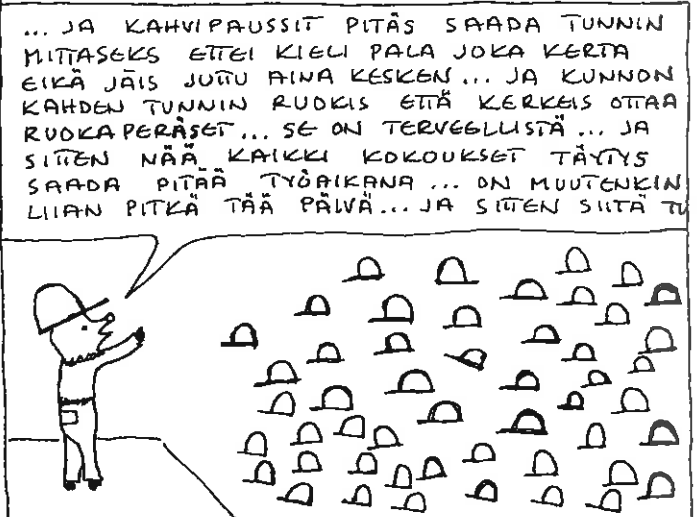 ... JA KAHVIPAUSSIT PITÄS SAADA TUNNIN
MITTASEKS ETTEI KIELI PALA JOKA KERTA
EIKÄ JÄIS JUTTU AINA KESKEN... JA KUNNON
KAHDEN TUNNIN RUOKIS ETTÄ KERKEIS OTTAA
RUOKAPERÄSET... SE ON TERVEELLISTÄ... JA
SITTEN NÄÄ KAIKKI KOKOUKSET TÄYTYS
SAADA PITÄÄ TYÖAIKANA... ON MUUTENKIN
LIIAN PITKÄ TÄÄ PÄIVÄ... JA SITTEN SIITÄ